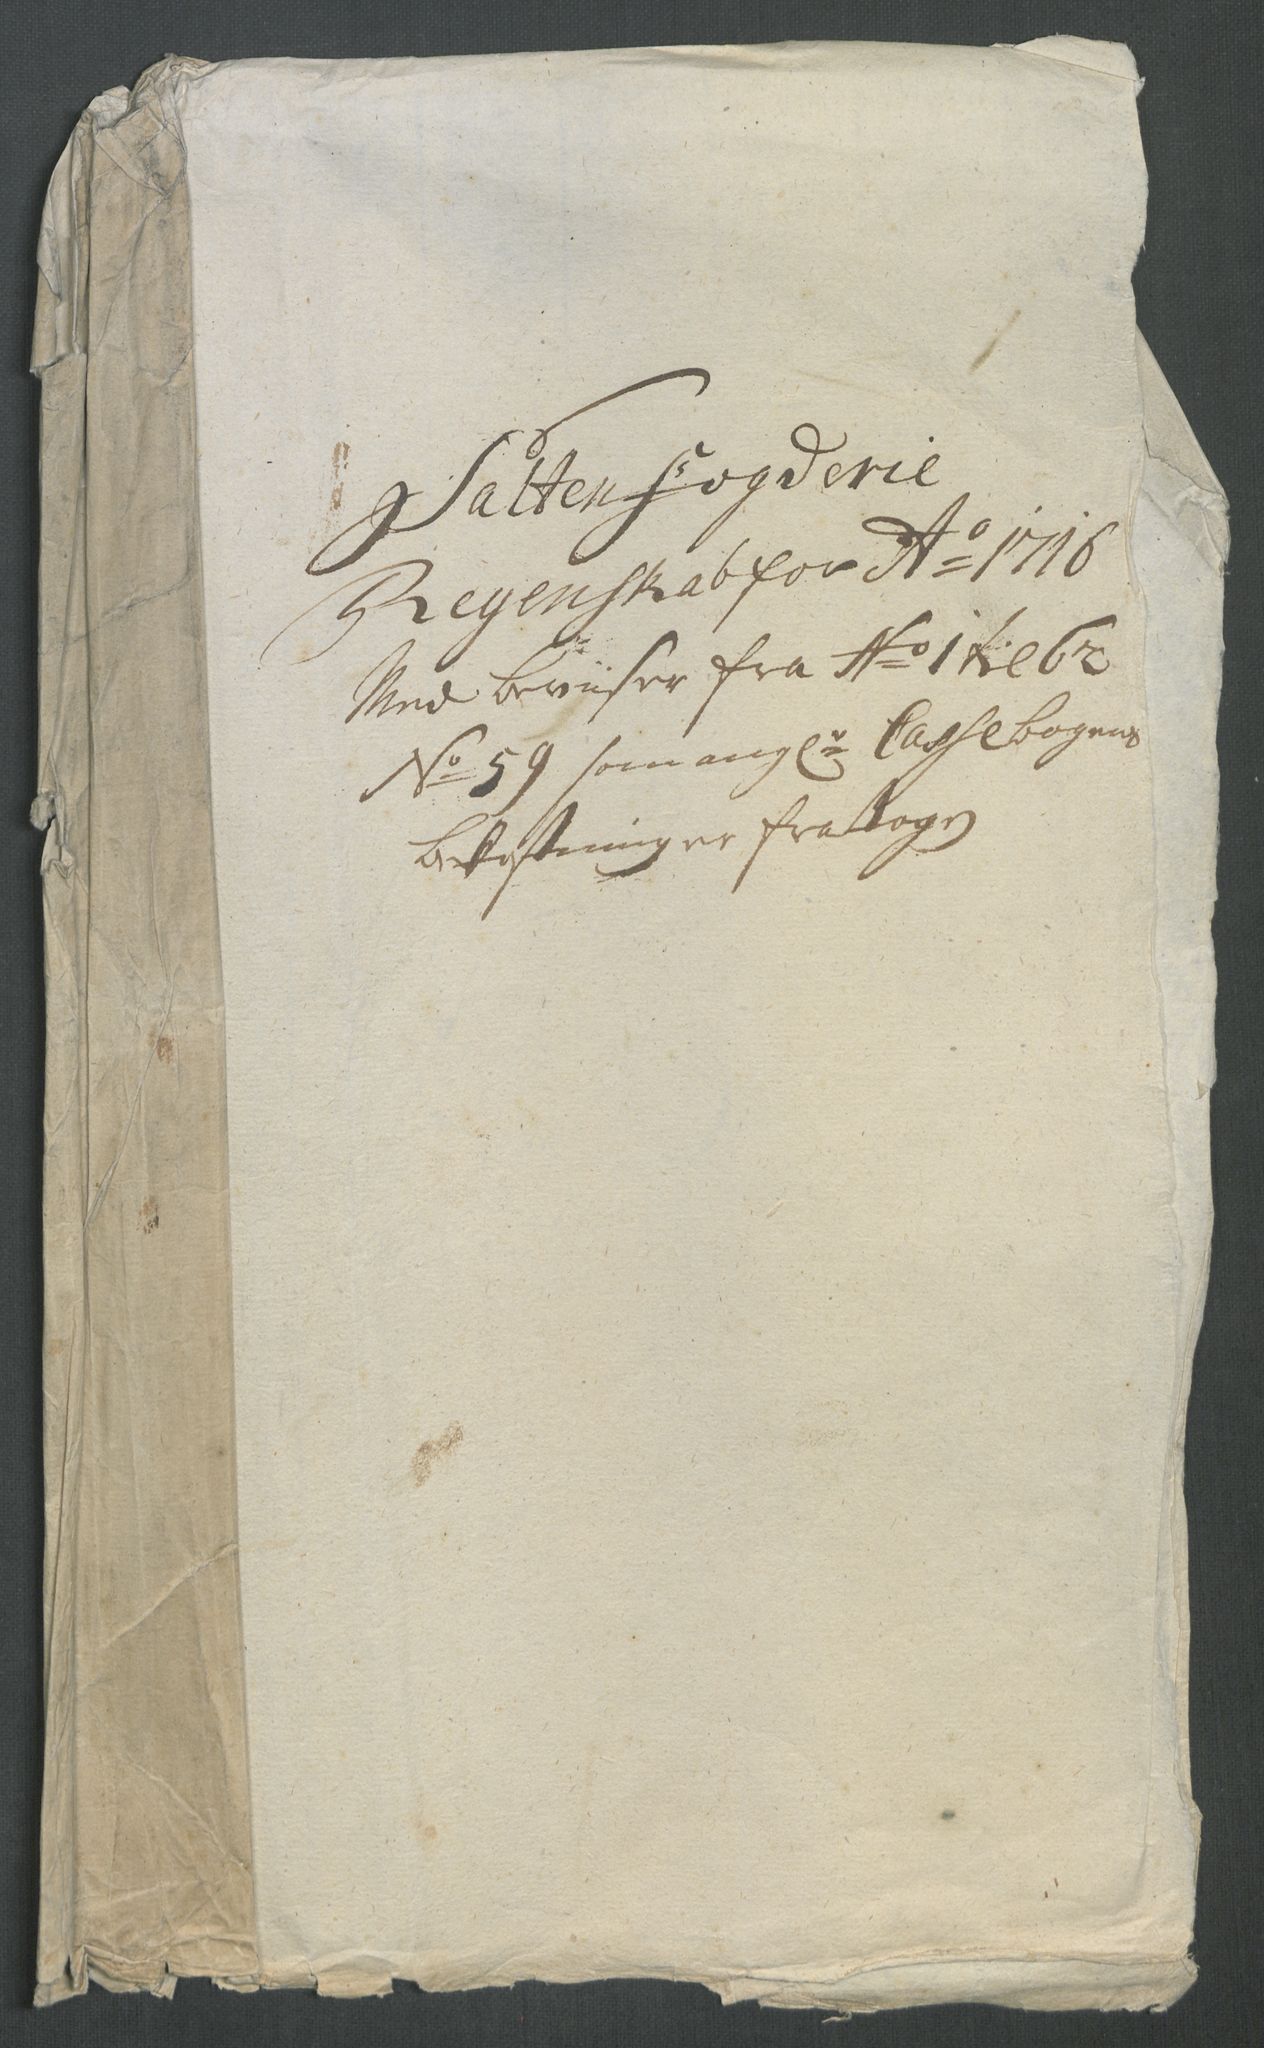 Salten Fogderie
Regenskab for Ao 1716
Med beviiser fra No 1 til 62
No 59 som angl:r Cassebogens
bekostninger fratagen